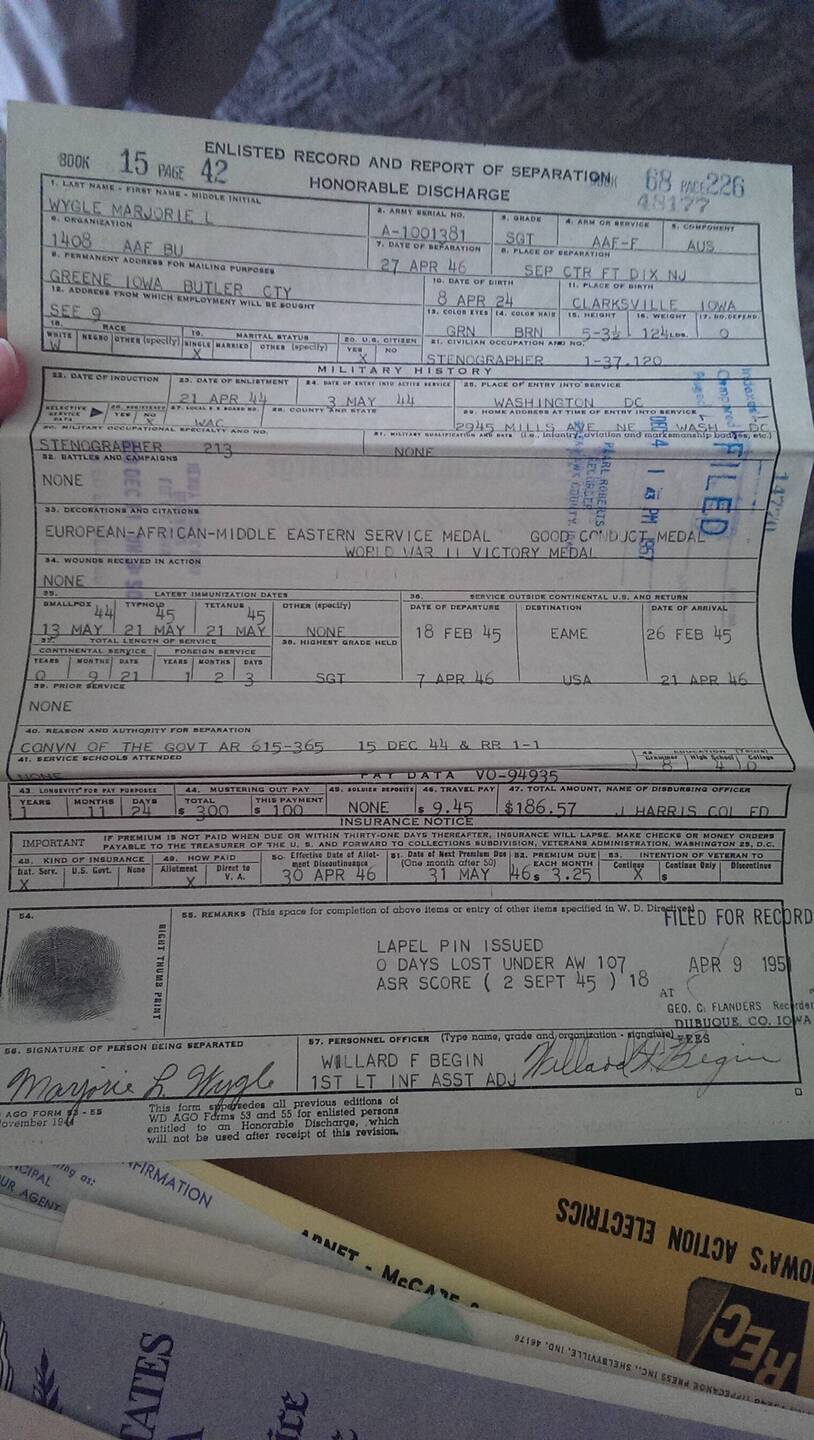 ENLISTED RECORD AND REPORT OF SEPARATION
HONORABLE DISCHARGE
BOOK 15 PAGE 42
68 PAGE 226
48177
1. LAST NAME - FIRST NAME - MIDDLE INITIAL
WYGLE MARJORIE L
2. ARMY SERIAL NO.
A-1001381
3. GRADE
SGT
4. ARM OR SERVICE
AAF-F
5. COMPONENT
AUS
6. ORGANIZATION
1408 AAF BU
7. DATE OF SEPARATION
27 APR 46
8. PLACE OF SEPARATION
SEP CTR FT DIX NJ
9. PERMANENT ADDRESS FOR MAILING PURPOSES
GREENE IOWA BUTLER CTY
10. DATE OF BIRTH
8 APR 24
11. PLACE OF BIRTH
CLARKSVILLE IOWA
12. ADDRESS FROM WHICH EMPLOYMENT WILL BE SOUGHT
SEE 9
13. COLOR EYES
GRN
14. COLOR HAIR
BRN
15. HEIGHT
5-3½
16. WEIGHT
124 LBS.
17. NO. DEPEND.
0
18. RACE
WHITE NEGRO OTHER (specify)
W
19. MARITAL STATUS
SINGLE MARRIED OTHER (specify)
X
20. U.S. CITIZEN
YES NO
X
21. CIVILIAN OCCUPATION AND NO.
STENOGRAPHER 1-37.120
MILITARY HISTORY
22. DATE OF INDUCTION
23. DATE OF ENLISTMENT
21 APR 44
24. DATE OF ENTRY INTO ACTIVE SERVICE
3 MAY 44
25. PLACE OF ENTRY INTO SERVICE
WASHINGTON DC
SELECTIVE SERVICE DATA
26. REGISTERED
YES NO
X
27. LOCAL S.S. BOARD NO.
WAC
28. COUNTY AND STATE
29. HOME ADDRESS AT TIME OF ENTRY INTO SERVICE
2945 MILLS AVE NE WASH DC
30. MILITARY OCCUPATIONAL SPECIALTY AND NO.
STENOGRAPHER 213
31. MILITARY QUALIFICATION AND DATE (i.e., infantry, aviation and marksmanship badges, etc.)
NONE
32. BATTLES AND CAMPAIGNS
NONE
33. DECORATIONS AND CITATIONS
EUROPEAN-AFRICAN-MIDDLE EASTERN SERVICE MEDAL GOOD CONDUCT MEDAL
WORLD WAR II VICTORY MEDAL
34. WOUNDS RECEIVED IN ACTION
NONE
35. LATEST IMMUNIZATION DATES
SMALLPOX TYPHOID TETANUS OTHER (specify)
44 45 45
13 MAY 21 MAY 21 MAY NONE
36. SERVICE OUTSIDE CONTINENTAL U.S. AND RETURN
DATE OF DEPARTURE DESTINATION DATE OF ARRIVAL
18 FEB 45 EAME 26 FEB 45
7 APR 46 USA 21 APR 46
37. TOTAL LENGTH OF SERVICE
CONTINENTAL SERVICE FOREIGN SERVICE
YEARS MONTHS DAYS YEARS MONTHS DAYS
0 9 21 1 2 3
38. HIGHEST GRADE HELD
SGT
39. PRIOR SERVICE
NONE
40. REASON AND AUTHORITY FOR SEPARATION
CONVN OF THE GOVT AR 615-365 15 DEC 44 & RR 1-1
41. SERVICE SCHOOLS ATTENDED
NONE
42. EDUCATION (Years)
Grammar High School College
8 4 0
PAY DATA VO-94935
43. LONGEVITY FOR PAY PURPOSES
YEARS MONTHS DAYS
1 11 24
44. MUSTERING OUT PAY
TOTAL THIS PAYMENT
$ 300 $ 100
45. SOLDIER DEPOSITS
NONE
46. TRAVEL PAY
$ 9.45
47. TOTAL AMOUNT, NAME OF DISBURSING OFFICER
$186.57 J HARRIS COL FD
INSURANCE NOTICE
IMPORTANT IF PREMIUM IS NOT PAID WHEN DUE OR WITHIN THIRTY-ONE DAYS THEREAFTER, INSURANCE WILL LAPSE. MAKE CHECKS OR MONEY ORDERS
PAYABLE TO THE TREASURER OF THE U. S. AND FORWARD TO COLLECTIONS SUBDIVISION, VETERANS ADMINISTRATION, WASHINGTON 25, D.C.
48. KIND OF INSURANCE
Nat. Serv. U.S. Govt. None
X
49. HOW PAID
Allotment Direct to V. A.
X
50. Effective Date of Allotment Discontinuance
30 APR 46
51. Date of Next Premium Due
(One month after 50)
31 MAY 46
52. PREMIUM DUE EACH MONTH
$ 3.25
53. INTENTION OF VETERAN TO
Continue Continue Only Discontinue
X $
54.
RIGHT THUMB PRINT
55. REMARKS (This space for completion of above items or entry of other items specified in W. D. Directives)
LAPEL PIN ISSUED
0 DAYS LOST UNDER AW 107
ASR SCORE ( 2 SEPT 45 ) 18
FILED FOR RECORD
APR 9 1951
AT
GEO. C. FLANDERS Recorder
DUBUQUE CO. IOWA
FEES
56. SIGNATURE OF PERSON BEING SEPARATED
Marjorie L. Wygle
57. PERSONNEL OFFICER (Type name, grade and organization - signature)
WILLARD F BEGIN
1ST LT INF ASST ADJ
Willard F. Begin
AGO FORM 53 - 55
November 1944
This form supersedes all previous editions of
WD AGO Forms 53 and 55 for enlisted persons
entitled to an Honorable Discharge, which
will not be used after receipt of this revision.
FILED
DEC 4 1 43 PM 1957
PEARL ROBERTS
RECORDER
Indexed
Compared
Paged
14720
IOWA'S ACTION ELECTRICS
REC
TIPPECANOE PRESS INC., SHELBYVILLE, IND. 46176